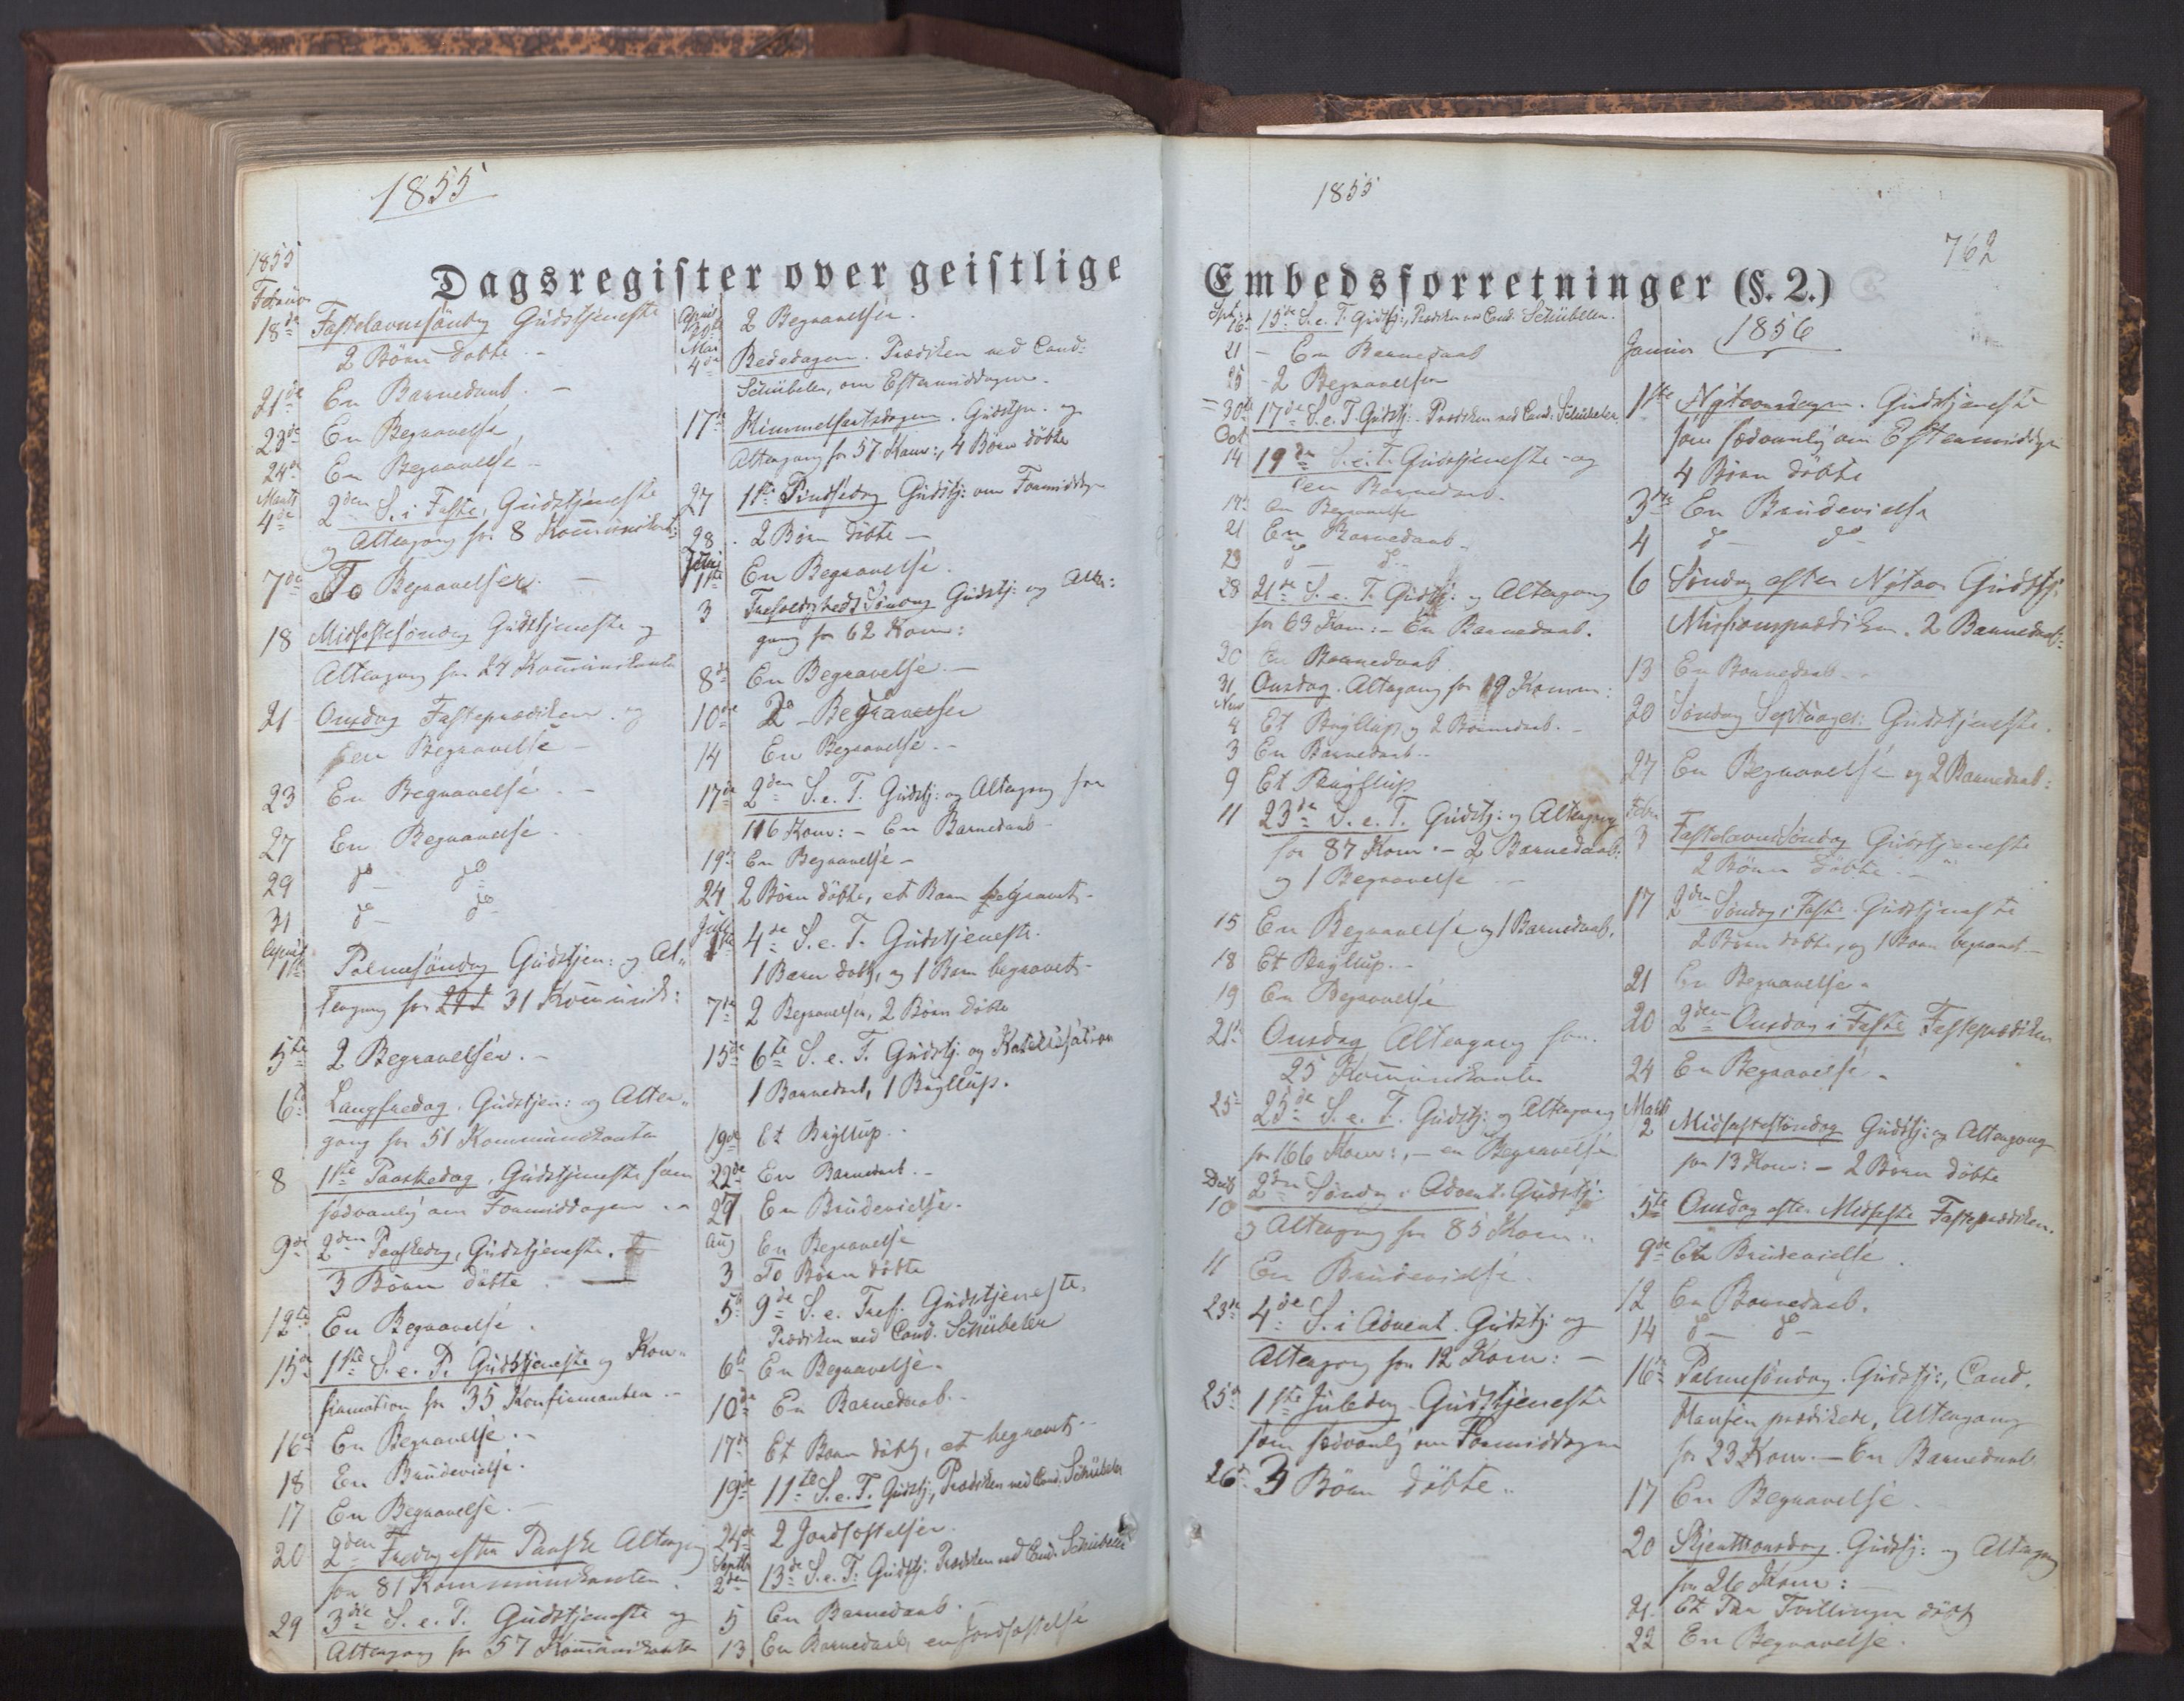 1855
Dagsregister over geistlige
1855
Februar
18de Fastelavnssöndag Gudstjeneste
2 Börn döbte. -
21de En Barnedaab. -
23de En Begravelse
24de En Begravelse -
Marts
4de 2den S. i Faste, Gudstjeneste
og Altergang for 8 Kommunikant:
7de To Begravelser. -
18 Midfastesöndag Gudstjeneste og
Altergang for 24 Kommunikanter
21 Onsdag Fasteprædiken og
en Begravelse -
23 En Begravelse. -
27 En Begravelse.
29 do - do -
31 do - do -
April
1ste Palmesöndag Gudstjen: og Al-
tergang for 31 Kommunik:
5te 2 Begravelser. -
6te Langfredag, Gudstjen: og Alter-
gang for 51 Kommunikanter
8 1ste Paaskedag, Gudstjeneste som
sædvanlig om Formiddagen. -
9de 2den Paaskedag, Gudstjeneste.
3 Börn döbte.
12te En Begravelse.
15de 1ste S. e. P. Gudstjeneste og Kon-
firmation for 35 Konfirmanter. -
16de En Begravelse. -
18 En Brudevielse.
17 En Begravelse. -
20 2den Fredag efter Paaske Altergang
for 81 Kommunikanter.
29 3die S. e. P. Gudstjeneste og
Altergang for 57 Kommunikanter
April
30te 2 Begravelser.
Mai
4de Bededagen. Prædiken ved Cand:
Schübeler, om Eftermiddagen.
17de Himmelfartsdagen. Gudstjen. og
Altergang for 57 Kom:, 4 Börn döbte
27 1ste Pindsedag Gudstj: om Formiddagen
28 2 Börn döbte -
Juni
1ste En Begravelse.
3 Trefoldighedssöndag Gudstj: og Alter:
gang for 62 Kom:
8de En Begravelse. -
10de 2 Begravelser
14 En Begravelse. -
17de 2den S. e. T. Gudstj: og Altergang for
116 Kom: - En Barnedaab
19de En Begravelse -
24 2 Börn döbte, et Barn begravet -
Juli
1ste 4de S. e. T. Gudstjeneste.
1 Barn döbt, og 1 Barn begravet -
7de 2 Begravelser, 2 Börn döbte
15de 6te S. e. T. Gudstj: og Katekisation
1 Barnedaab, 1 Bryllup.
19de Et Bryllup. -
22de En Barnedaab. -
29 En Brudevielse.
Aug En Begravelse
3 To Börn döbte
5te 9de S. e. Tref. Gudstjeneste,
Prædiken ved Cand. Schübeler
6te En Begravelse.
10de En Barnedaab. -
17de Et Barn döbt, et begravet. -
19de 11te S. e. T. Gudstj:, Prædiken ved Cand. Schübeler
24de 2 Jordfæstelser.
Septb
2den 13de S. e. T. Gudstj: Prædiken ved Cand. Schübeler
5 En Barnedaab. -
13 En Barnedaab, en Jordfæstelse
1855
762
Embedsforretninger (§. 2.)
Spt
16de 15de S. e. T. Gudstj:, Prædiken ved Cand. Schübeler.
21 - En Barnedaab
25 - 2 Begravelser
30te 17de S. e. T. Gudstj: Prædiken ved Cand: Schübeler.
Oct
14 19de S. e. T. Gudstjeneste - og
en Barnedaab.
17 En Begravelse
21 En Barnedaab -
23 do - do -
28 21de S. e. T. Gudstj: og Altergang
for 63 Kom: - En Barnedaab.
30 En Barnedaab
31 Onsdag. Altergang for 19 Komm:
Novb
4 Et Bryllup og 2 Barnedaab. -
3 En Barnedaab -
9 Et Bryllup
11 23de S. e. T. Gudstj: og Altergang
for 87 Kom. - 2 Barnedaab:
og 1 Begravelse -
15 En Begravelse og 1 Barnedaab.
18 Et Bryllup. -
19 En Begravelse
21de Onsdag Altergang for
25 Kommunikanter
25 25de S. e. T. Gudstj: og Altergang
for 166 Kom:, - en Begravelse
Decb
10 2den Söndag i Advent. Gudstj:
og Altergang for 85 Kom.
11 En Brudevielse.
23de 4de S. i Advent. Gudstj: og
Altergang for 12 Kom: -
25de 1ste Juledag Gudstjeneste
som sædvanlig om Formiddagen
26de 3 Börn döbte.
Januar 1856
1ste Nytaarsdagen. Gudstjeneste
som sædvanlig om Eftermiddagen
4 Börn döbte
3die En Brudevielse
4 do - do -
6 Söndag efter Nytaar Gudstj:
Missionsprædiken. 2 Barnedaab:
13 En Barnedaab -
20 Söndag Septuages: Gudstjeneste.
27 En Begravelse og 2 Barnedaab:
Febr
3 Fastelavnssöndag Gudstjeneste
2 Börn döbte. -
17 2den Söndag i Faste. Gudstjeneste
2 Börn döbte, og 1 Barn begravet -
21 En Begravelse.
20 2den Onsdag i Faste Fasteprædiken
24 En Begravelse. -
Marts
2 Midfastesöndag Gudstj: og Altergang
for 13 Kom: - 2 Börn döbte
5te Onsdag efter Midfaste Fasteprædiken.
9de En Brudevielse.
12 En Barnedaab.
14 do - do -
16de Palmesöndag. Gudstj:, Cand.
Hansen prædikede, Altergang
for 23 Kom. - En Barnedaab
17 En Begravelse. -
20 Skjærthorsdag. Gudstj: og Altergang
for 26 Kom: -
21. Et Par Tvillinger döbt
22 En Begravelse.